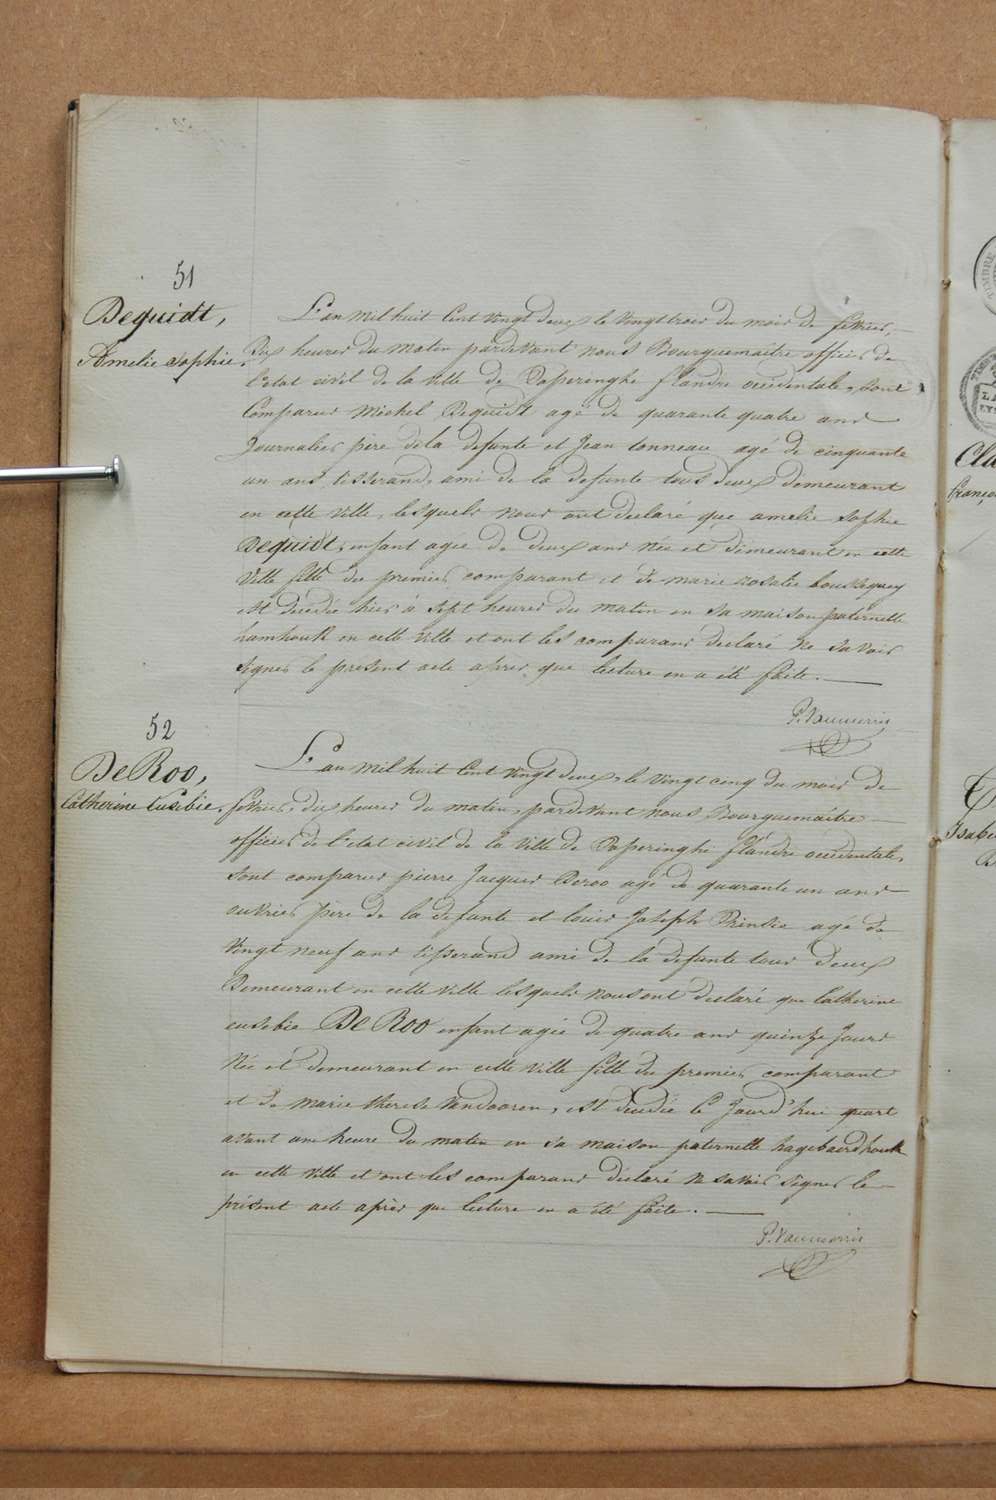 51
Dequidt,
Amelie Sophie.
L'an mil huit Cent vingt deux le vingt trois du mois de fevrier,
Dix heures du matin pardevant nous Bourguemaître officier de
l'etat civil de la ville de Poperinghe flandre occidentale, sont
Comparus Michel Dequidt agé de quarante quatre ans
Journalier pere de la defunte et Jean Conneau agé de cinquante
un ans tisserand, ami de la defunte tous deux demeurant
en cette ville, lesquels nous ont declaré que amelie sophie
Dequidt, enfant agée de deux ans née et demeurant en cette
ville fille du premier comparant et de marie rosalie
est décédée hier à sept heures du matin en sa maison paternelle
hamhouk en cette ville et ont les comparans declaré ne savoir
signer le présent acte après que lecture en a été faite.
P. Vanmerris
52
De Roo,
Catherine Eusebie.
L'an mil huit Cent vingt deux, le vingt cinq du mois de
fevrier, dix heures du matin, pardevant nous Bourguemaître
officier de l'etat civil de la ville de Poperinghe flandre occidentale,
sont comparus pierre Jacques Deroo agé de quarante un ans
ouvrier pere de la defunte et louis Joseph agé de
vingt neuf ans tisserand ami de la defunte tous deux
Demeurant en cette ville lesquels nous ont declaré que Catherine
eusebie De Roo enfant agée de quatre ans quinze jours
Née et demeurant en cette ville fille du premier comparant
et de marie therese Vandooren, est décédée ce jourd'hui quart
avant une heure du matin en sa maison paternelle hagebaerdhouk
en cette ville et ont les comparans déclaré ne savoir signer le
présent acte après que lecture en a été faite.
P. Vanmerris